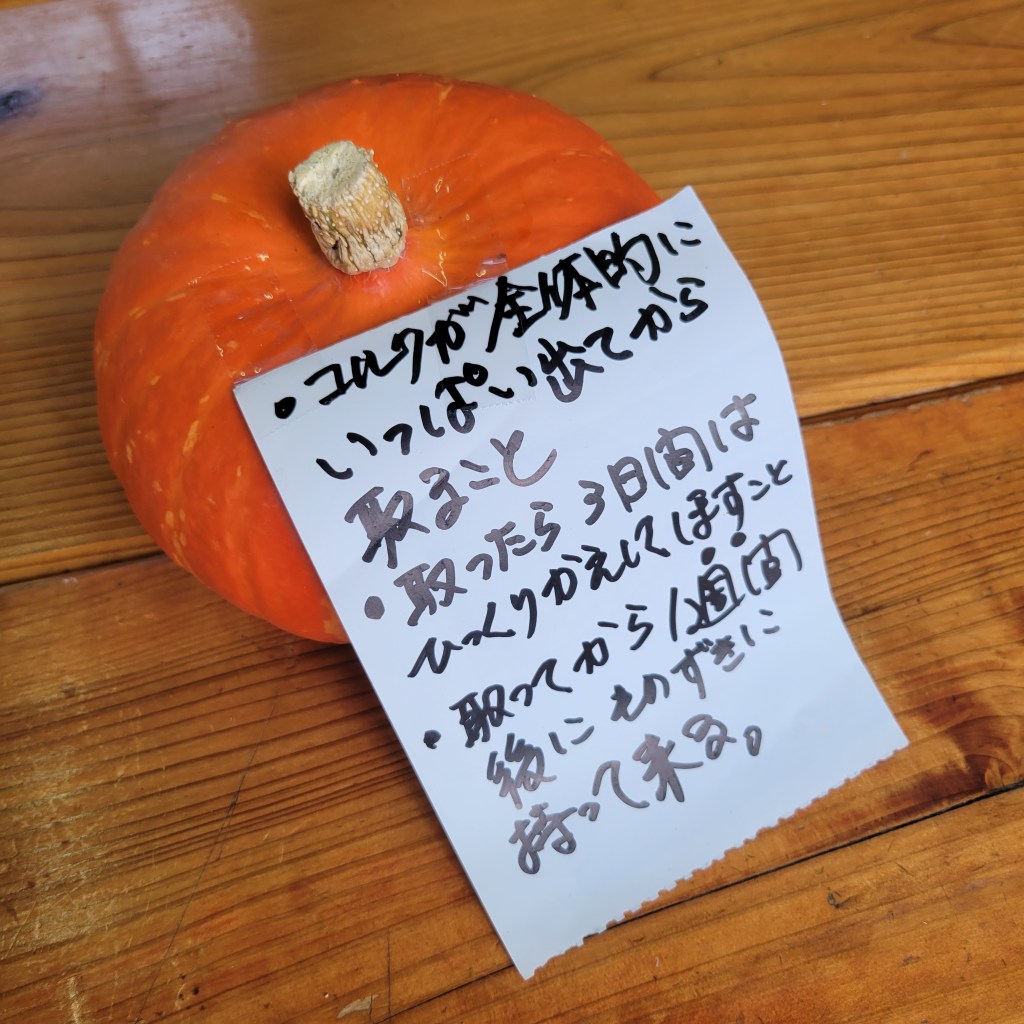 ・コルクが全体的に
いっぱい出てから
取ること
・取ったら3日間は
ひっくりかえしてほすこと
・取ってから1週間
後にものずきに
持って来る。